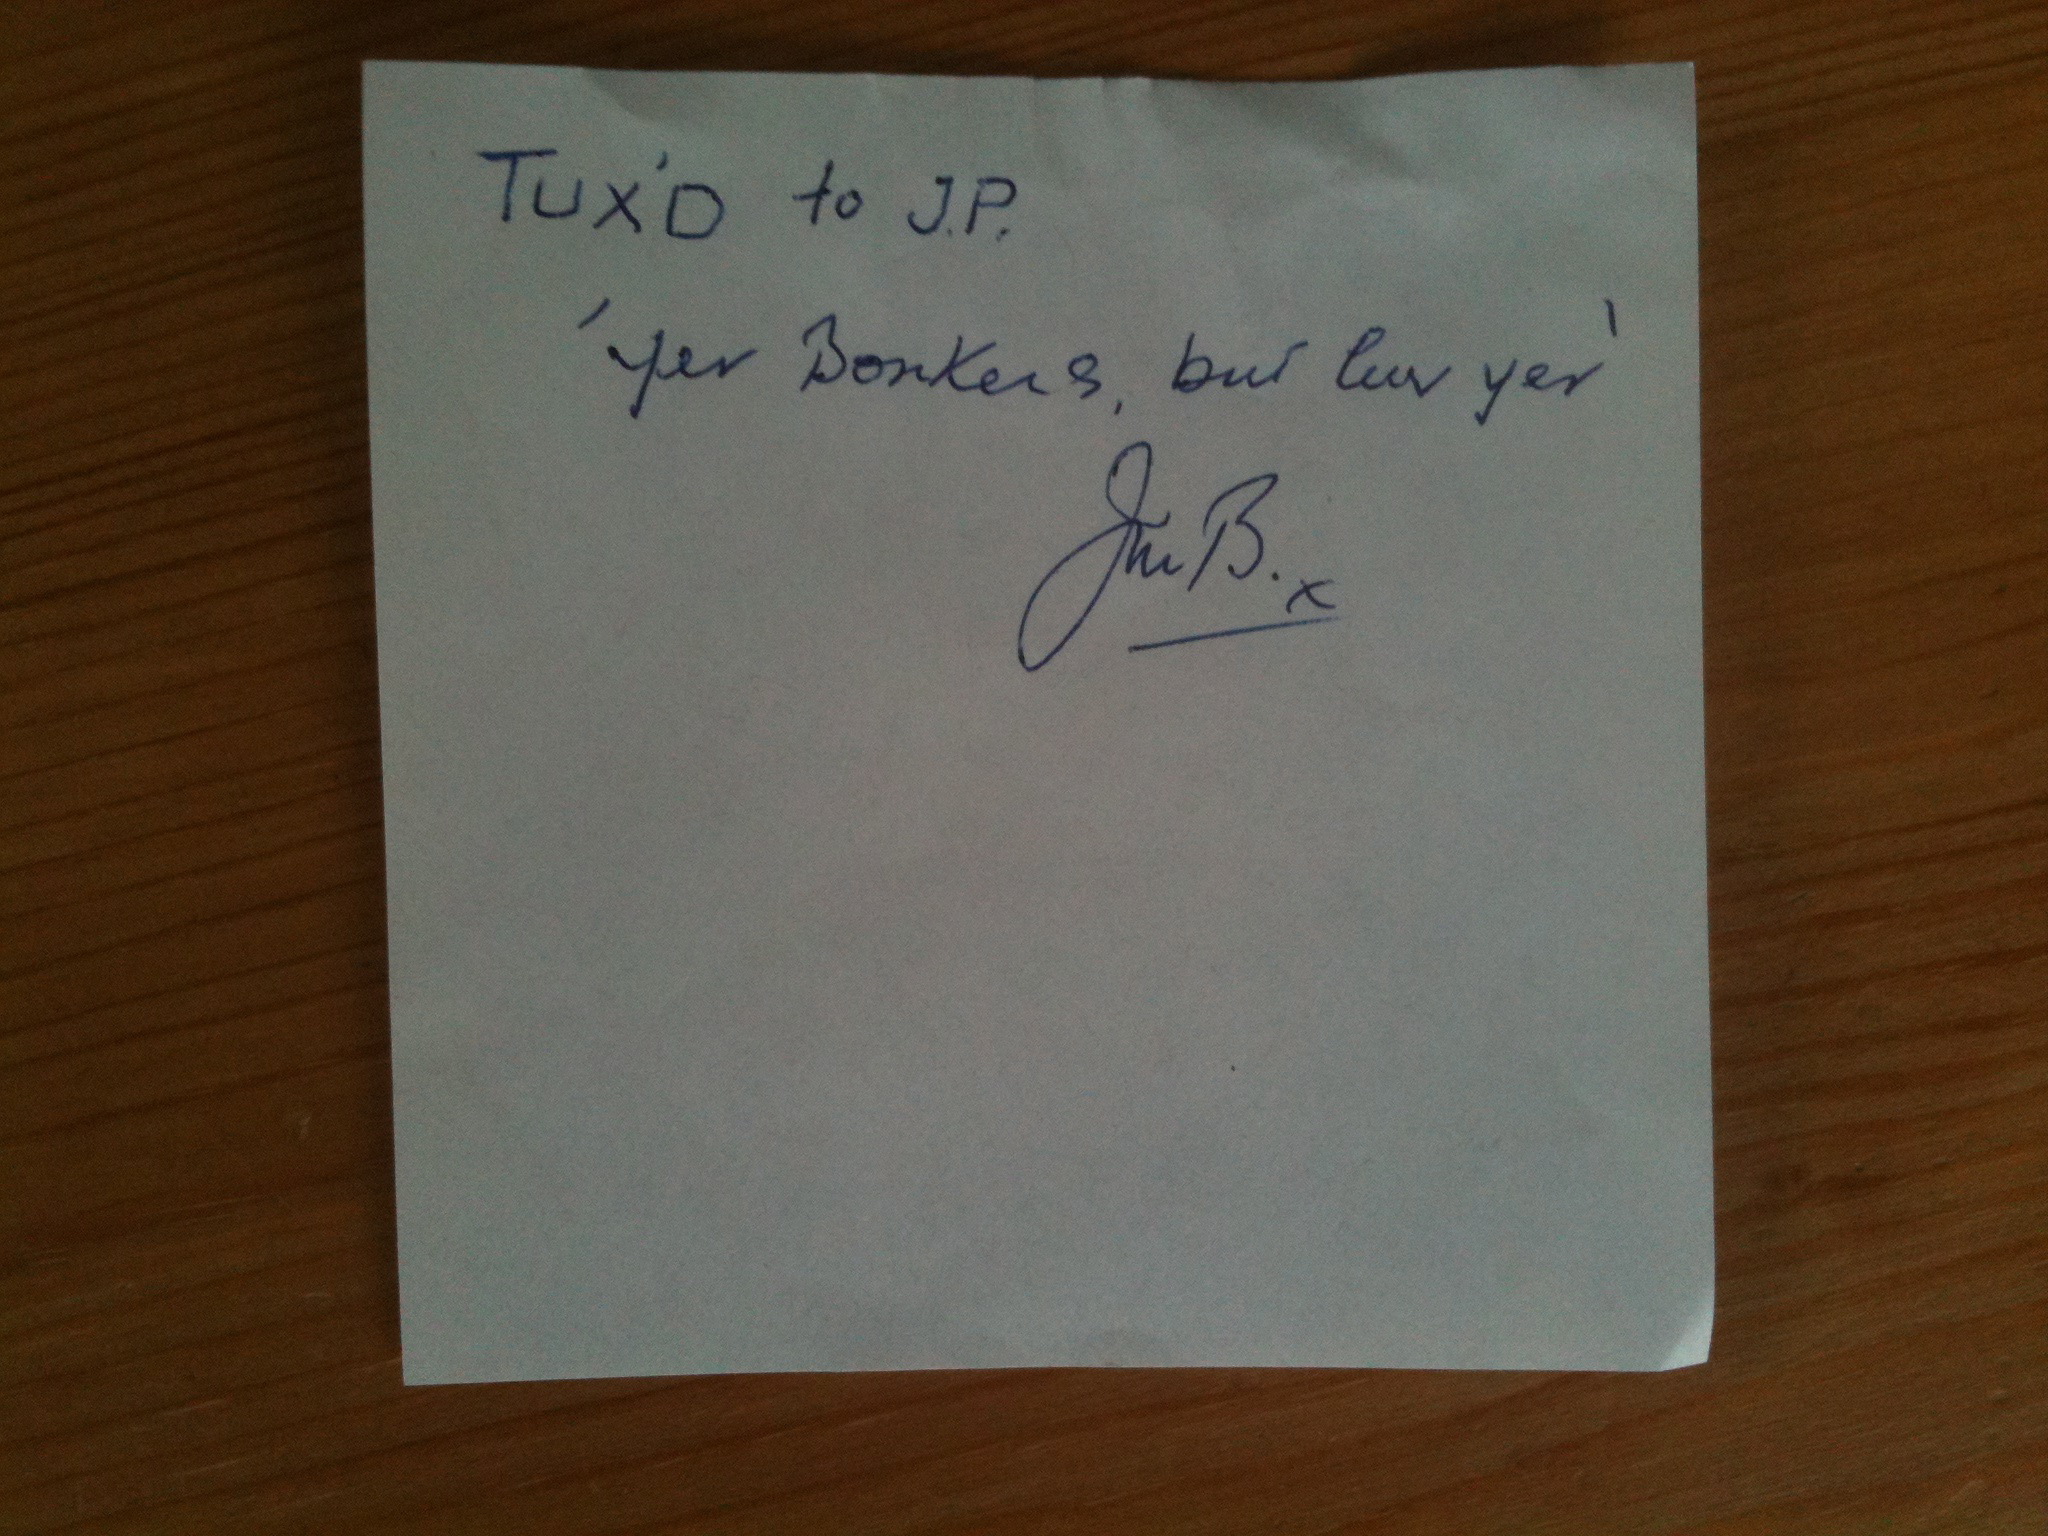 TUX'D to J.P.
'yer Bonkers, but luv yer'
Jim B. x